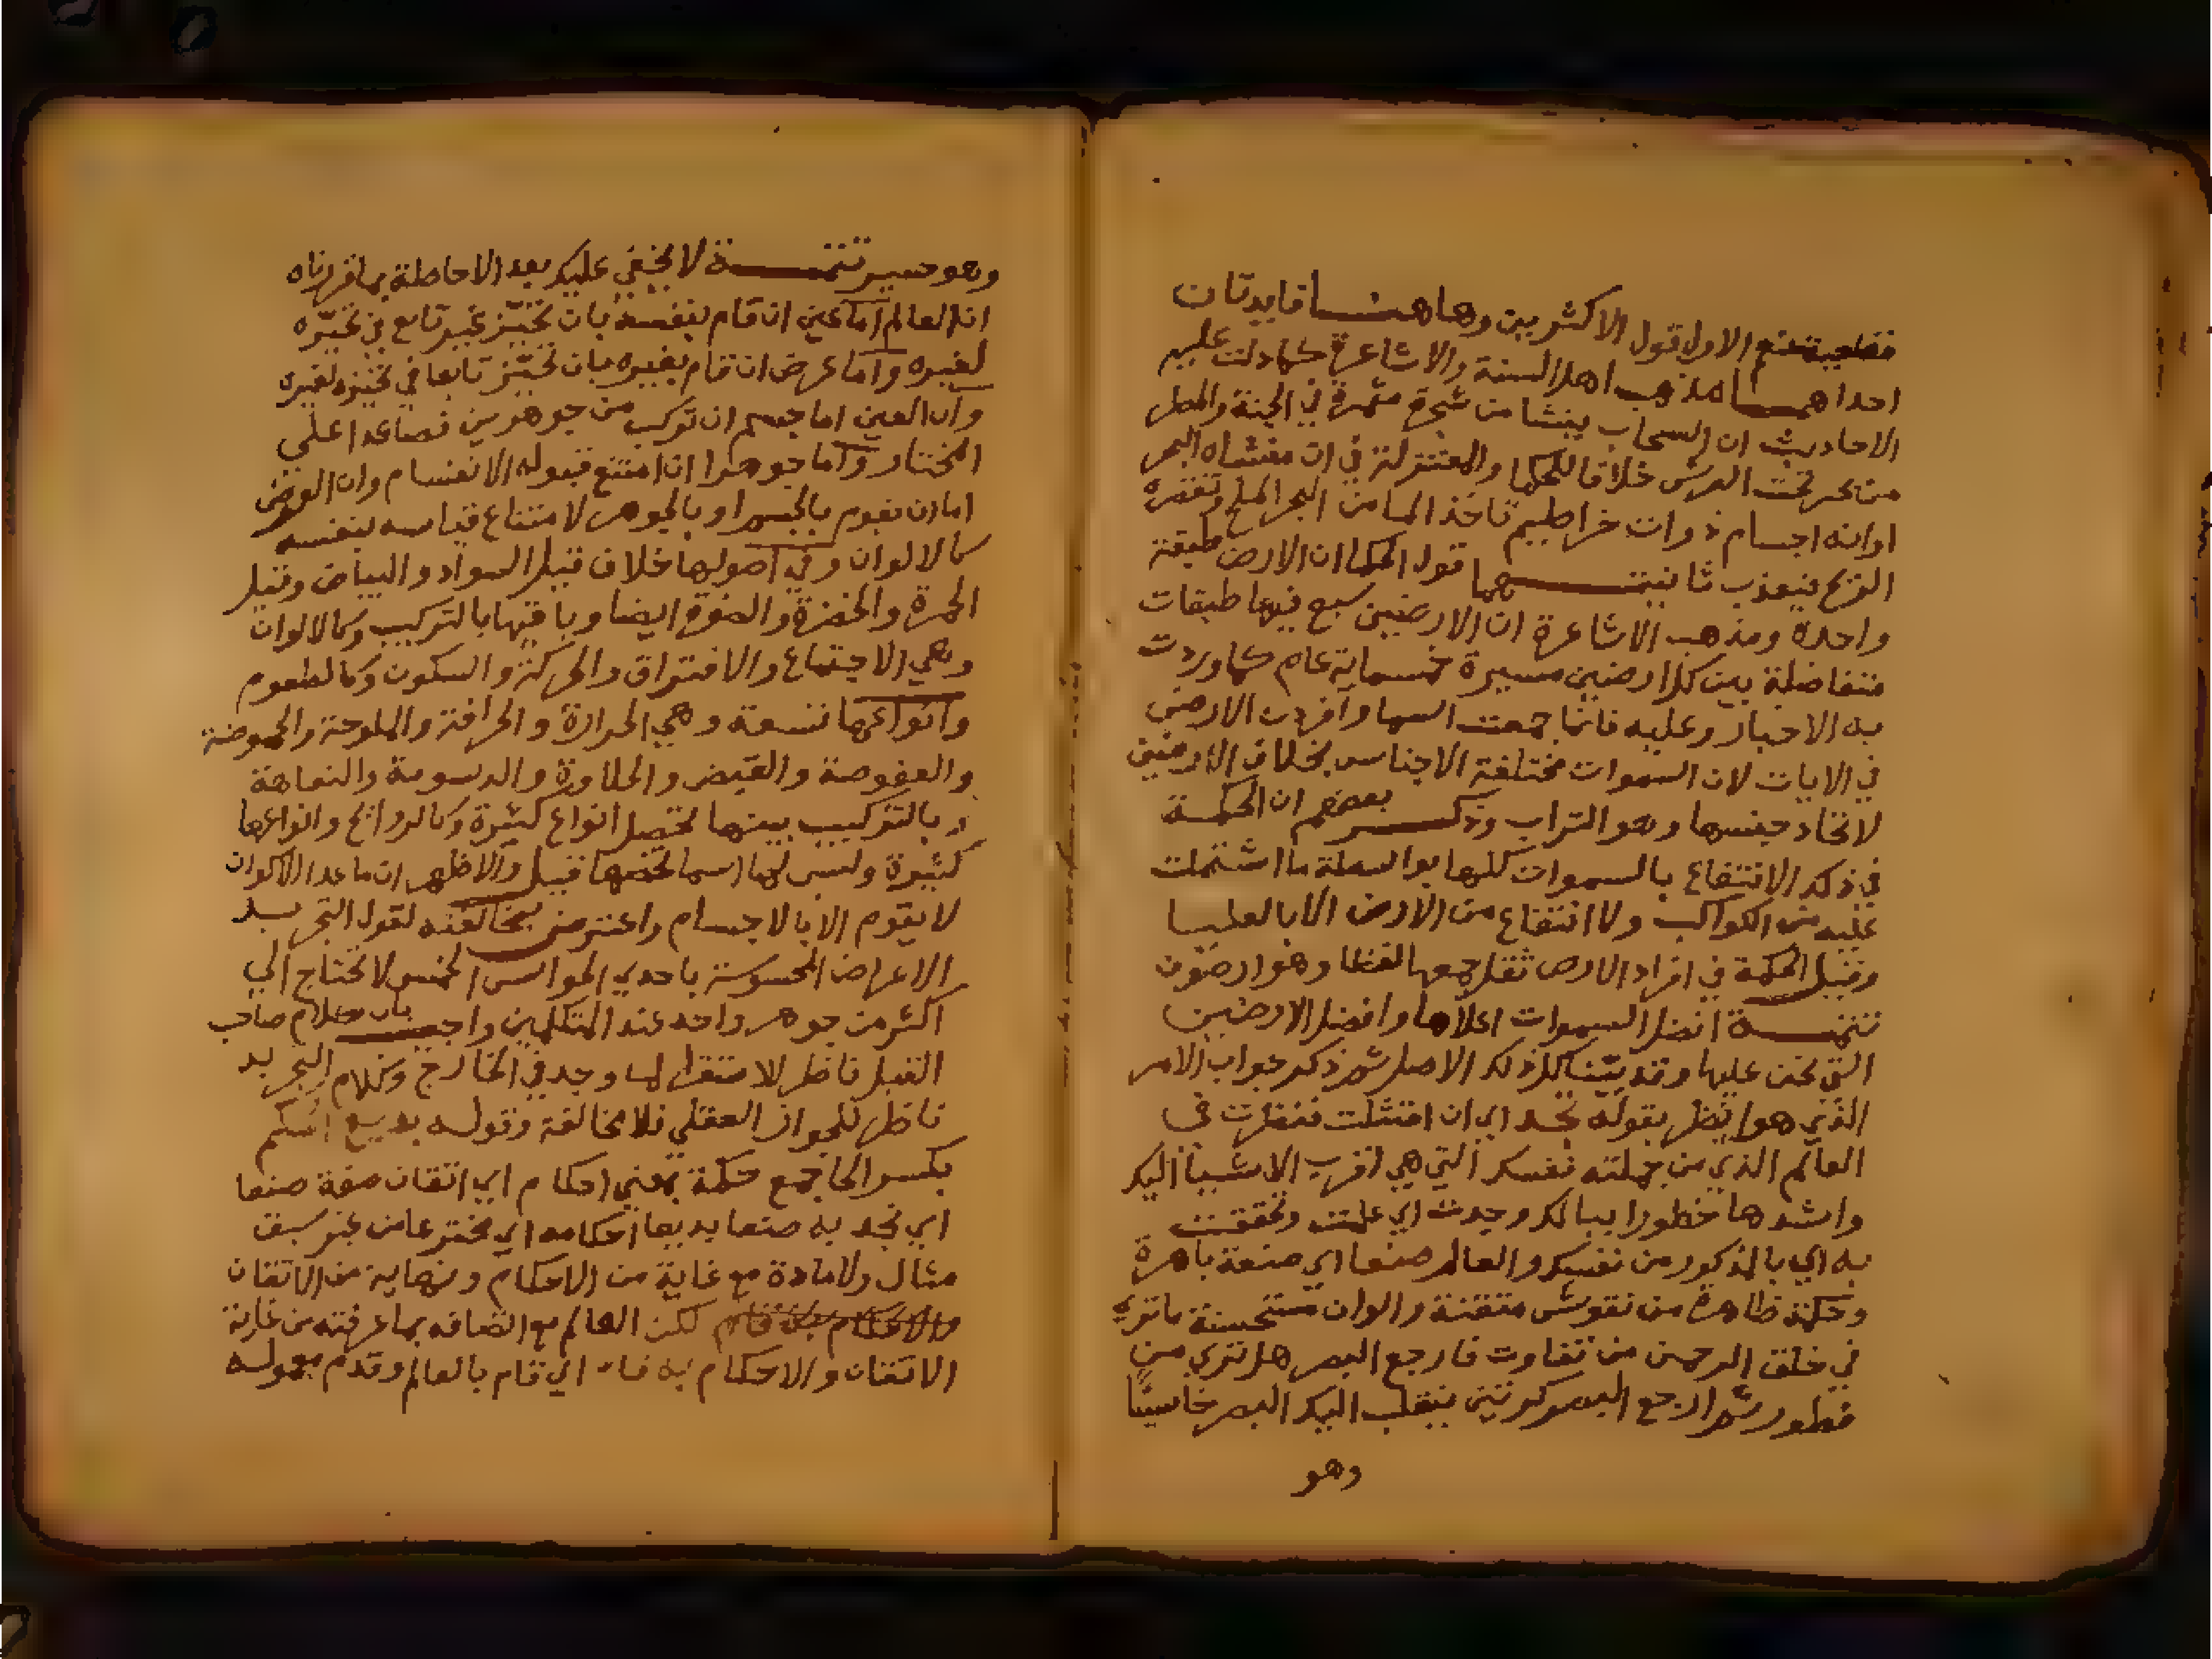 قطعية منع الاول قول الاكثريين وهاهنا فايدتان
احداهما مذهب اهل السنة والاشاعرة كما دلت عليه
الاحاديث ان السحاب ينشا من شجرة مثمرة في الجنة والمطر
من بحر تحت العرش خلافا للحكما والمعتزلة في ان منشاه البحر
اوانه اجسام ذوات خراطيم تاخذ الما من البحر الملح وتقصره
الريح فيعذب ثانيتهما قول الحكما ان الارض طبقة
واحدة ومذهب الاشاعرة ان الارضين سبع فيها طبقات
متفاضلة بين كل ارضين مسيرة خمسماية عام كما وردت
به الاخبار وعليه فانما جمعت السما وافردت الارض
في الايات لان السموات مختلفة الاجناس بخلاف الارضين
لاتحاد جنسها وهو التراب وذكر بعضهم ان الحكمة
في ذكر الانتفاع بالسموات كلها بواسطة ما اشتملت
عليه من الكواكب ولا انتفاع من الارض الا بالعليا
وقيل الحكمة في افراد الارض ثقل جمعها لفظا وهو ارضون
تتمة افضل السموات اعلاها وافضل الارضين
التي نحن عليها وقد بيّنا كل ذلك الاصل ثم ذكر جواب الامر
الذي هو انظر بقوله تجد اي ان امتثلت فنظرت في
العالم الذي من جملته نفسك التي هي اقرب الاشيا اليك
واشدها خطورا ببالك وجدت اي علمت وتحققت
به اي بالمذكور من نفسك والعالم صنعا اي صنعة باهرة
وحكمة ظاهرة من نقوش متقنة والوان مستحسنة ماتري
في خلق الرحمن من تفاوت فارجع البصر هل تري من
فطور ثم ارجع البصر كرتين ينقلب اليك البصر خاسيًا
وهو
وهو حسير تتمة لا يخفي عليك بعد الاحاطة بما قررناه
ان العالم اما عين ان قام بنفسه بان تحيّز غير تابع في تحيّزه
لغيره واما عرض ان قام بغيره بان تحيّز تابعا في تحيزه لغيره
وان العين اما جسم ان تركب من جوهرين فصاعدا علي
المختار واما جوهرا ان امتنع قبوله الانقسام وان العرض
اما ان يقوم بالجسم او بالجوهر لامتناع قيامه بنفسه
كالالوان وفي اصولها خلاف قيل السواد والبياض وقيل
الحمرة والخضرة والصفرة ايضا وباقيها بالتركيب وكالاكوان
وهي الاجتماع والافتراق والحركة والسكون وكالطعوم
وانواعها تسعة وهي الحرارة والحرافة والملوحة والحموضة
والعفوصة والقبض والحلاوة والدسومة والتفاهة
وبالتركيب بينها تحصل انواع كثيرة وكالروائح وانواعها
كثيرة وليس لها اسما تخصها قيل والاظهر ان ما عدا الاكوان
لا يقوم الا بالاجسام واعترض بمخالفته لقول التجريد
الاعراض المحسوسة باحدي الحواس الخمس لا تحتاج الي
اكثر من جوهر واحد عند المتكلمين واجيب بان كلام صاحب
القيل ناظر للاستقرا لما وجد في الخارج وكلام التجريد
ناظر للجواز العقلي فلا مخالفة وقوله بديع الحكم
بكسر الحا جمع حكمة بمعني احكام اي اتقان صفة صنعا
اي تجد به صنعا بديعا احكامه اي مخترعا من غير سبق
مثال ولا مادة مع غاية من الاحكام ونهاية من الاتقان
لكن العالم مع اتصافه بما عرفته من غاية
الاتقان والاحكام به قام اي قام بالعالم وقدم معموله